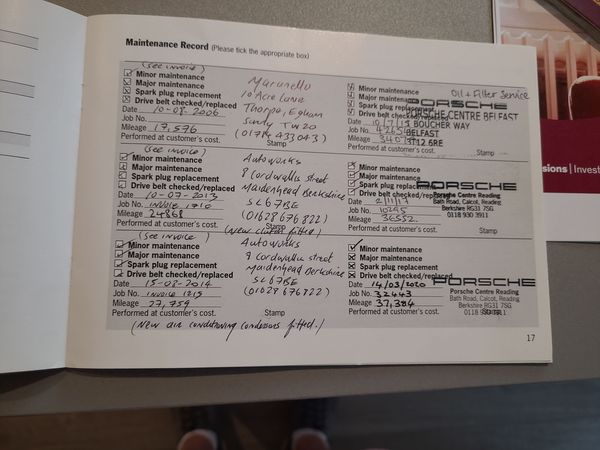 Maintenance Record (Please tick the appropriate box)
(see invoice)
Minor maintenance
Major maintenance
Spark plug replacement
Drive belt checked/replaced
Date 10-05-2006
Job No.
Mileage 17,576
Performed at customer's cost.
Maranello
10 Acre Lane
Thorpe, Egham
Surry TW20
Stamp
(see invoice)
Minor maintenance
Major maintenance
Spark plug replacement
Drive belt checked/replaced
Date 10-07-2013
Job No. INVOICE 1210
Mileage 24868
Performed at customer's cost.
Autoworks
8 Cordwallis street
Maidenhead Berkshire
SL6 7BE
(01628 676822)
Stamp
(New clutch fitted)
(see invoice)
Minor maintenance
Major maintenance
Spark plug replacement
Drive belt checked/replaced
Date 15-08-2014
Job No. INVOICE 1215
Mileage 27,759
Performed at customer's cost.
Autoworks
8 Cordwallis street
Maidenhead Berkshire
SL6 7BE
(01628 676822)
Stamp
(New air conditioning condensors fitted.)
Oil + Filter Service
Minor maintenance
Major maintenance
Spark plug replacement
Drive belt checked/replaced
Date
Job No.
Mileage
Performed at customer's cost.
PORSCHE
PORSCHE CENTRE BELFAST
BOUCHER WAY
BELFAST
BT12 6RE
Stamp
Minor maintenance
Major maintenance
Spark plug replacement
Drive belt checked/replaced
Date 2/11/17
Job No. 10295
Mileage 36552
Performed at customer's cost.
PORSCHE
Porsche Centre Reading
Bath Road, Calcot, Reading
Berkshire RG31 7SG
0118 930 3911
Stamp
Minor maintenance
Major maintenance
Spark plug replacement
Drive belt checked/replaced
Date 14/03/2020
Job No. 32443
Mileage 37,384
Performed at customer's cost.
PORSCHE
Porsche Centre Reading
Bath Road, Calcot, Reading
Berkshire RG31 7SG
Stamp
17